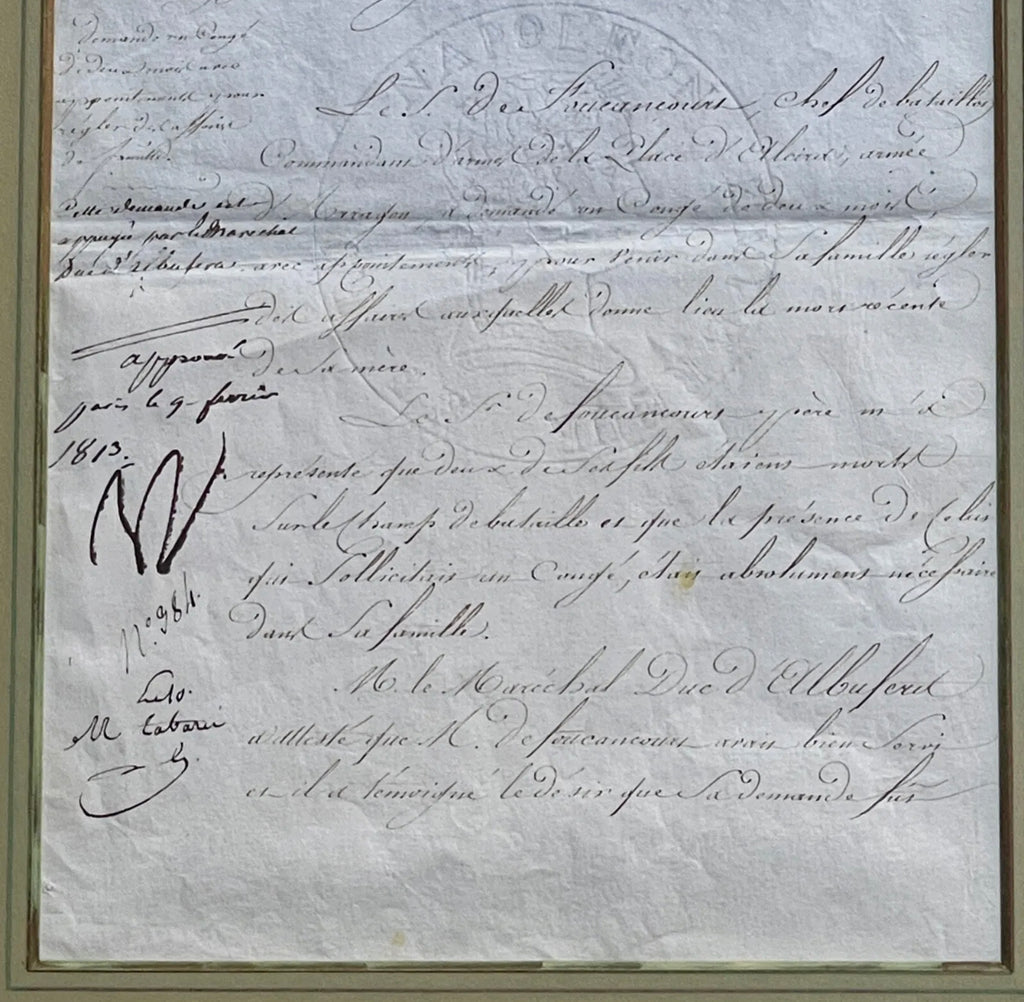 demande un Congé
de deux mois avec
appointements pour
régler des affaires
de famille.
Cette demande est
appuyée par le Maréchal
Duc d'Albufera.
approuvé
paris le 9 fevrier
1813.
N
n.° 984.
Le 10.
M Tabarié
G.
NAPOLEON
Le S. de Foucancourt, chef de bataillon
Commandant d'armes de la Place d'Alcirea, armée
d'Arragon, a demandé un Congé de deux mois,
avec appointements, pour venir dans sa famille régler
des affaires auxquelles donne lieu la mort récente
de sa mère.
Le Sr. de foucancourt, père m'a
représenté que deux de Ses fils etaient morts
Sur le Champ de bataille et que la présence de Celui
qui Sollicitait un Congé, était absolument nécessaire
dans Sa famille.
M. le Maréchal Duc d'Albufera
atteste que M. de foucancourt avait bien Servi
et il a témoigné le désir que Sa demande fût